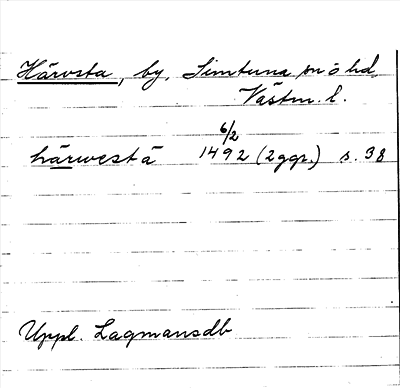 Härvsta, by, Simtuna sn o hd,
Västm. l.
härwestä 6/2 1492 (2 ggr.) s. 38
Uppl. Lagmansdb